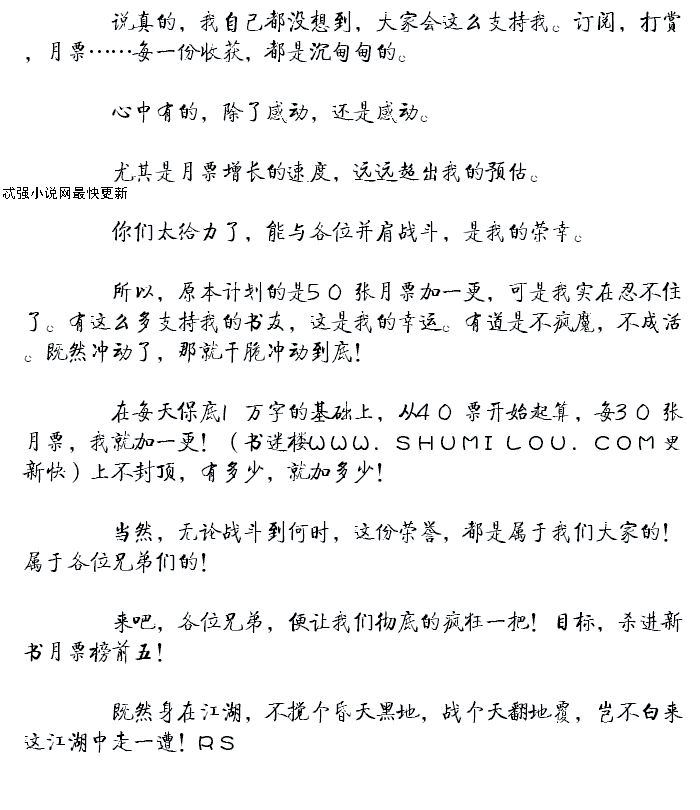 说真的，我自己都没想到，大家会这么支持我。订阅，打赏
，月票……每一份收获，都是沉甸甸的。
心中有的，除了感动，还是感动。
尤其是月票增长的速度，远远超出我的预估。
忒强小说网最快更新
你们太给力了，能与各位并肩战斗，是我的荣幸。
所以，原本计划的是50张月票加一更，可是我实在忍不住
了。有这么多支持我的书友，这是我的幸运。有道是不疯魔，不成活
。既然冲动了，那就干脆冲动到底！
在每天保底1万字的基础上，从40票开始起算，每30张
月票，我就加一更！（书迷楼WWW．SHUMILOU．COM更
新快）上不封顶，有多少，就加多少！
当然，无论战斗到何时，这份荣誉，都是属于我们大家的！
属于各位兄弟们的！
来吧，各位兄弟，便让我们彻底的疯狂一把！目标，杀进新
书月票榜前五！
既然身在江湖，不搅个昏天黑地，战个天翻地覆，岂不白来
这江湖中走一遭！RS